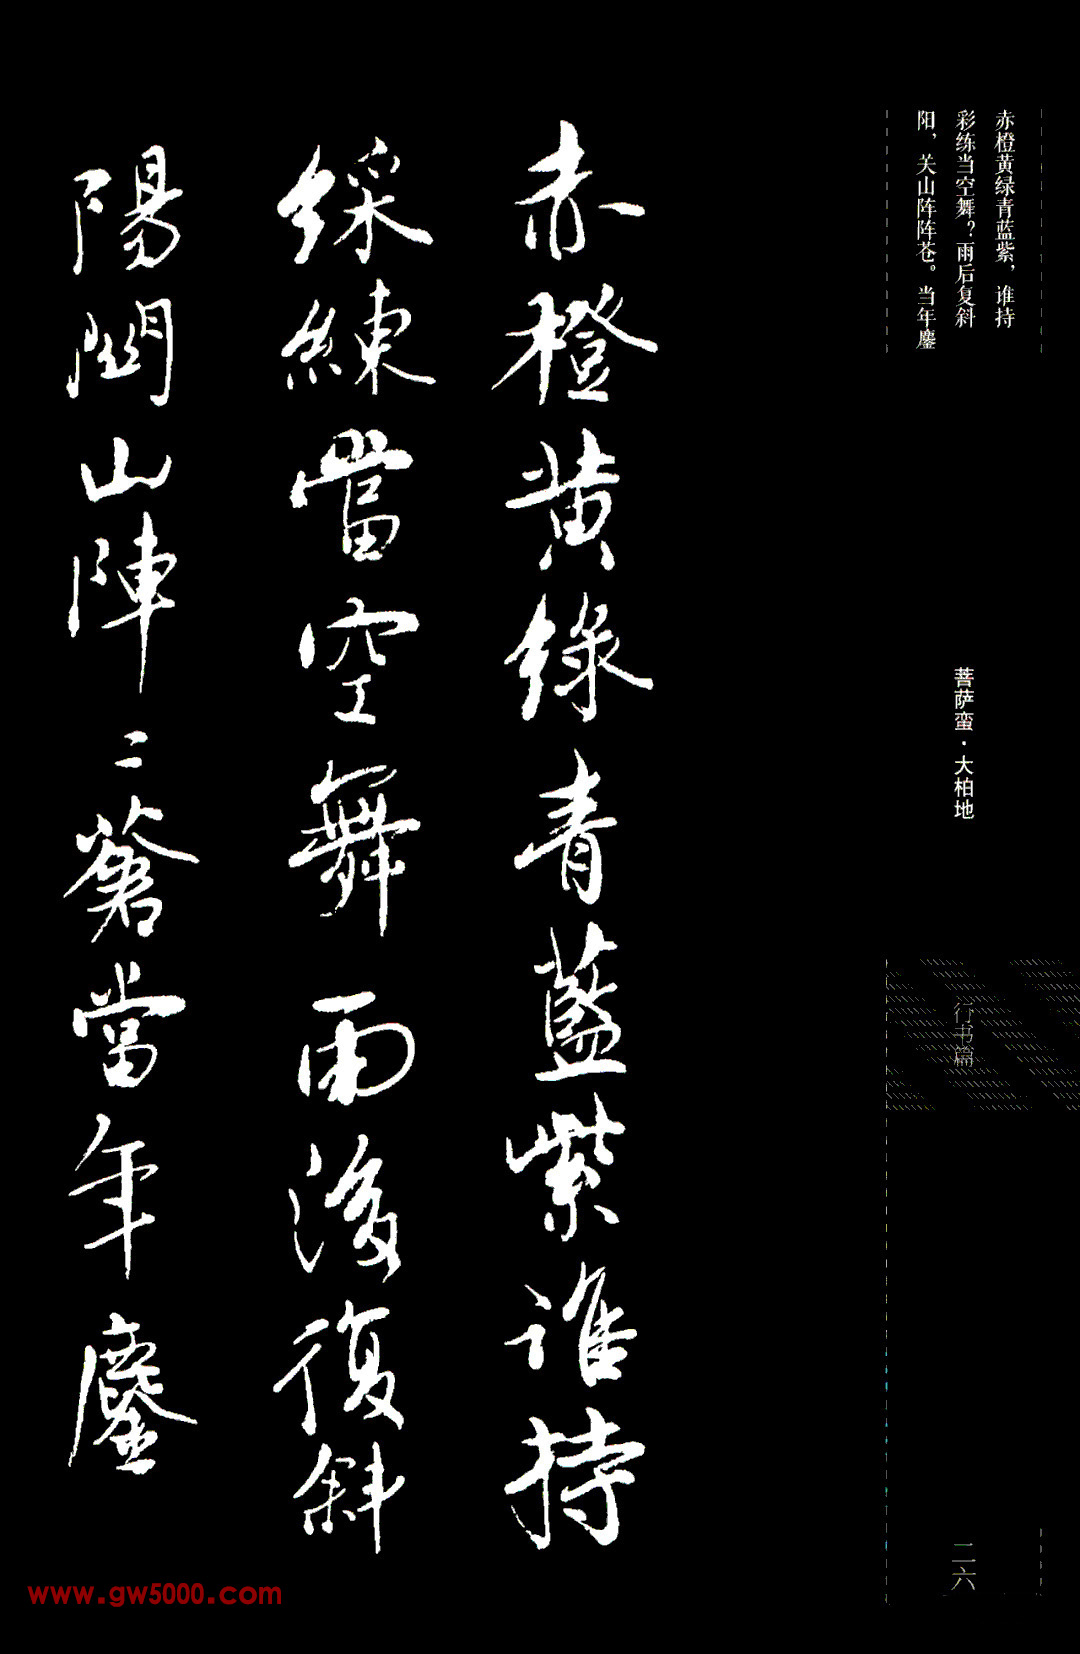 赤橙黄绿青蓝紫，谁持
彩练当空舞？雨后复斜
阳，关山阵阵苍。当年鏖
菩萨蛮·大柏地
行书篇
二六
赤橙黄綠青藍紫谁持
綵練當空舞雨後復斜
陽関山陣〻蒼當年鏖
www.gw5000.com